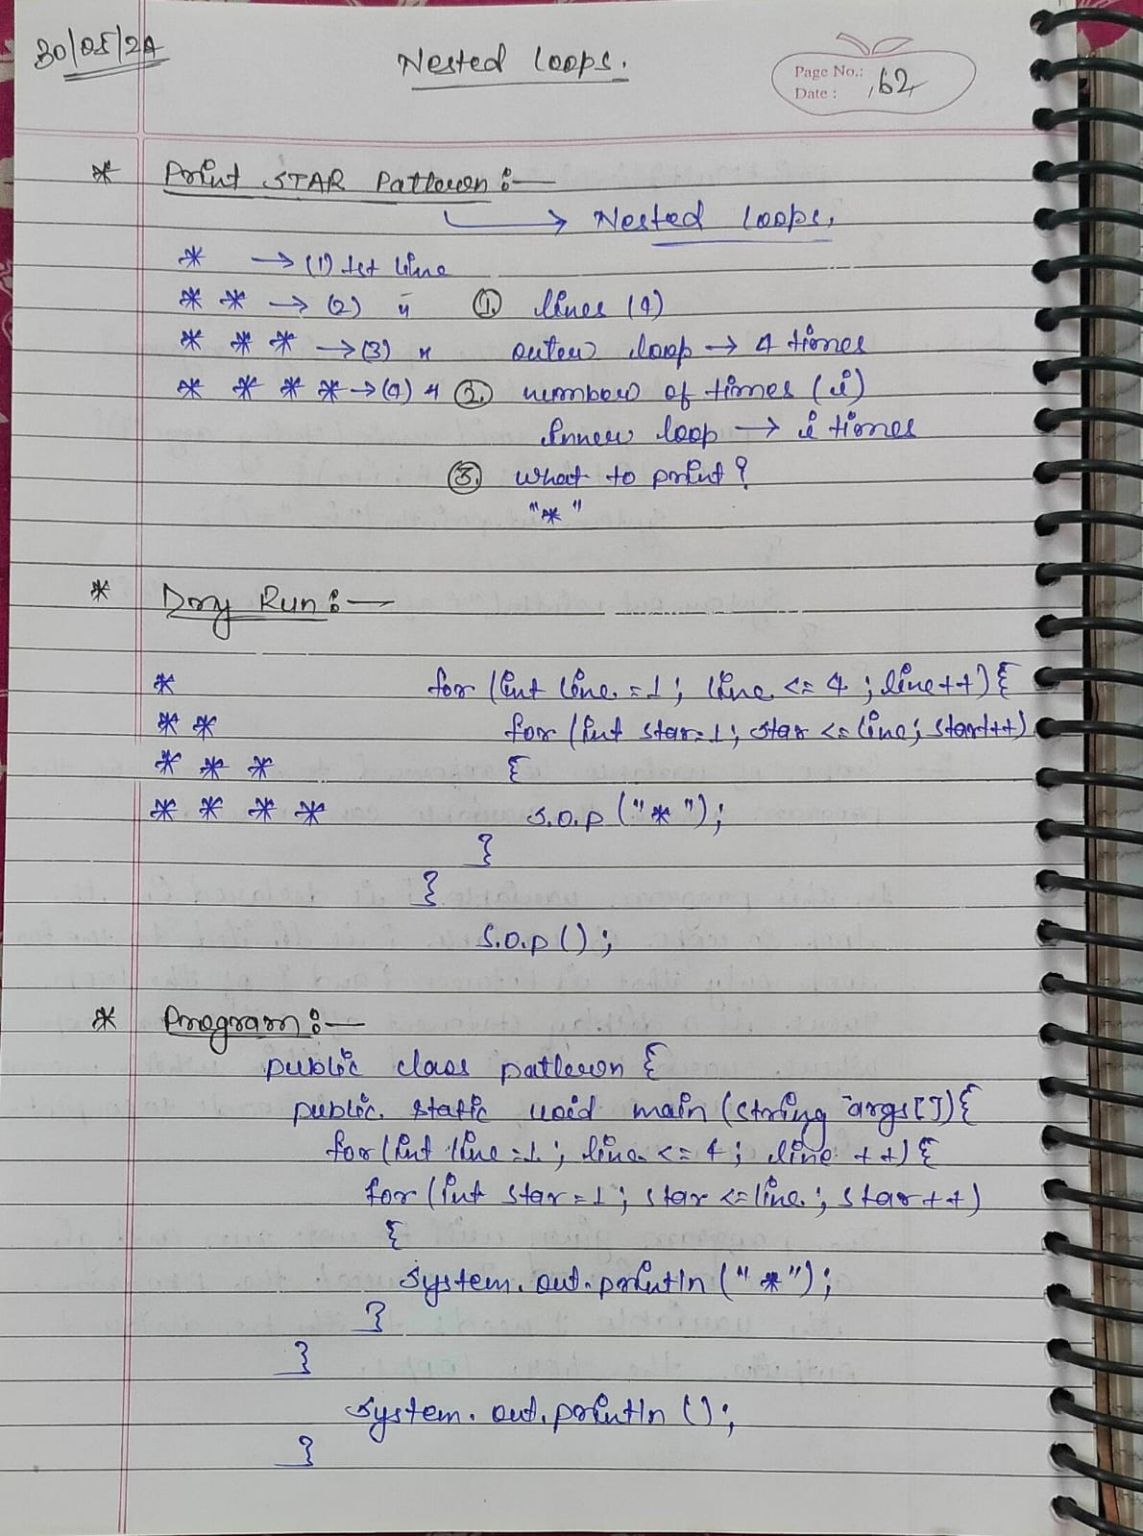 30/05/24
Nested loops.
Page No.: 62
Date :
* Print STAR Pattern :—
→ Nested loops.
* → (1) 1st line
* * → (2) "
① lines (4)
* * * → (3) "
outer loop → 4 times
* * * * → (4) "
② number of times (i)
Inner loop → i times
③ What to print?
"*"
* Dry Run :—
* for (int line = 1; line <= 4; line++) {
* * for (int star = 1; star <= line; star++)
* * * {
* * * * S.O.P ("*");
}
}
S.O.P ();
* Program :—
public class pattern {
public static void main (string args[]) {
for (int line = 1; line <= 4; line ++) {
for (int star = 1; star <= line; star ++)
{
system.out.println ("*");
}
}
system.out.println ();
}